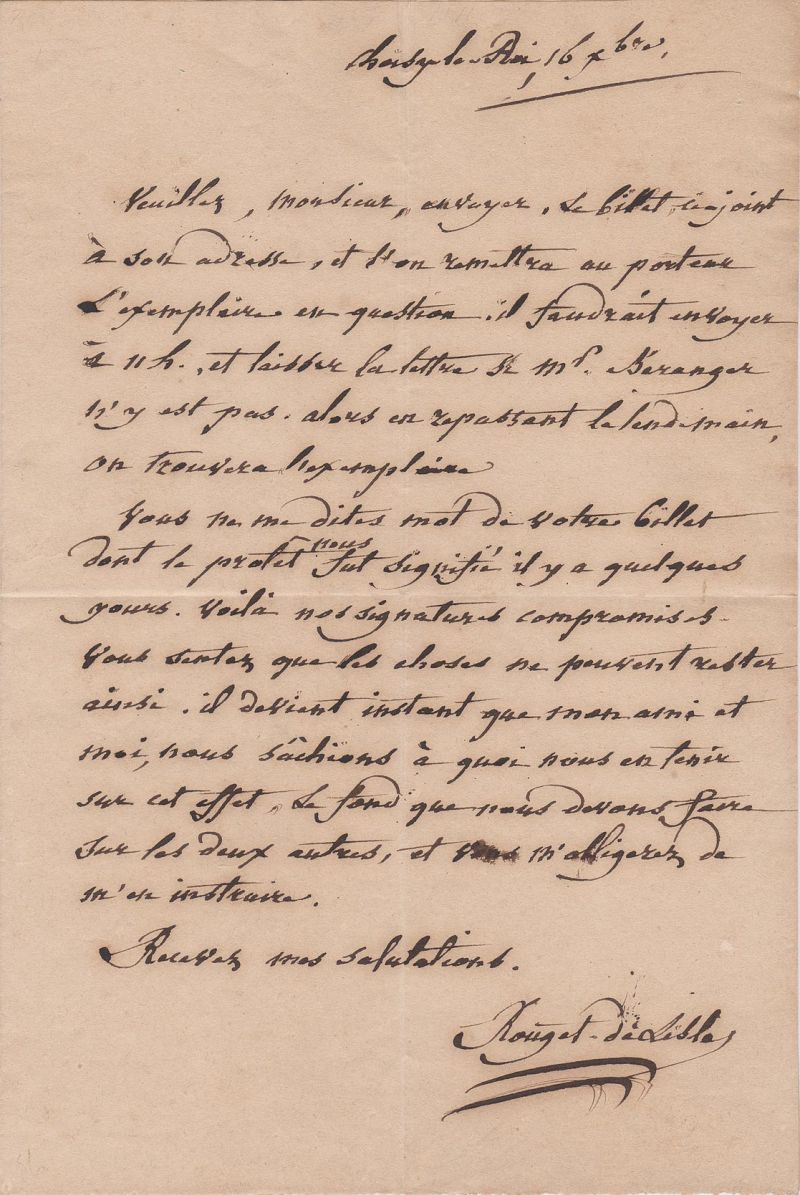 Choisy-le-Roi, 16 xbre,
Veuillez, monsieur, envoyer, le billet ci-joint
à son adresse, et l'on remettra au porteur
l'exemplaire en question. il faudrait envoyer
à 11 h., et laisser la lettre si mr. Béranger
n'y est pas. alors en repassant le lendemain,
on trouvera l'exemplaire
Vous ne me dites mot de votre billet
dont le protêt nous fut signifié il y a quelques
jours. Voilà nos signatures compromises.
Vous sentez que les choses ne peuvent rester
ainsi. il devient instant que mon ami et
moi, nous sâchions à quoi nous en tenir
sur cet effet, le fond que nous devons faire
sur les deux autres, et vous m'obligerez de
m'en instruire.
Recevez mes salutations.
Rouget-de Lisle